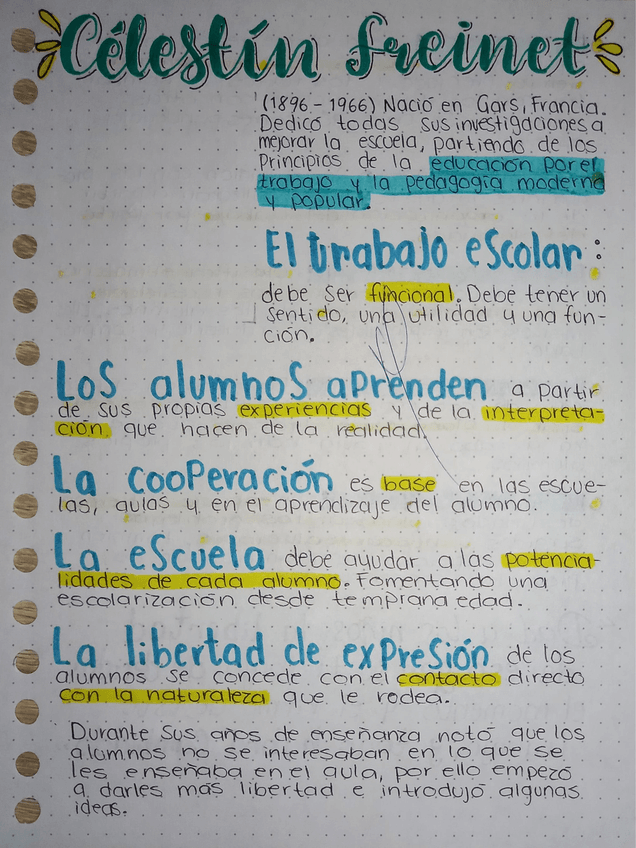 Célestín Freinet
(1896 - 1966) Nació en Gars, Francia.
Dedicó todas sus investigaciones a
mejorar la escuela, partiendo de los
Principios de la educación por el
trabajo y la pedagogía moderna
y popular.
El trabajo escolar:
debe ser funcional. Debe tener un
sentido, una utilidad y una fun-
ción.
Los alumnos aprenden a partir
de sus propias experiencias y de la interpreta-
ción que hacen de la realidad.
La cooperación es base en las escue-
las, aulas y en el aprendizaje del alumno.
La escuela debe ayudar a las potencia-
lidades de cada alumno. Fomentando una
escolarización desde temprana edad.
La libertad de expresión de los
alumnos se concede con el contacto directo
con la naturaleza que le rodea.
Durante sus años de enseñanza notó que los
alumnos no se interesaban en lo que se
les enseñaba en el aula, por ello empezó
a darles más libertad e introdujó algunas
ideas.